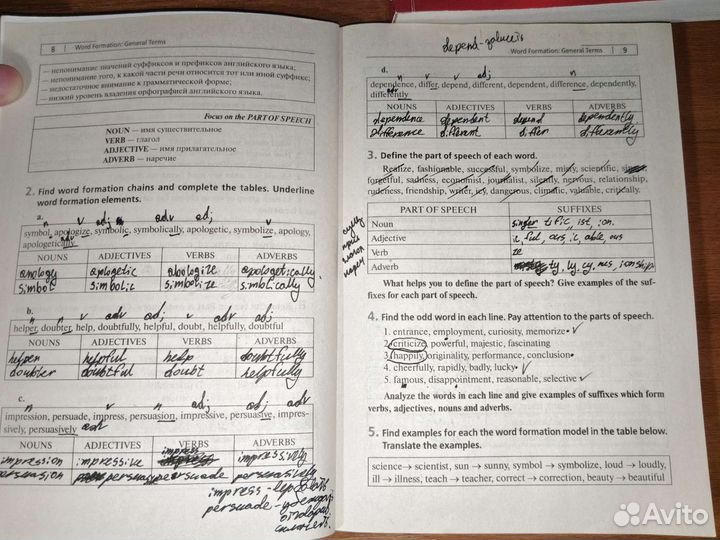 8 | Word Formation: General Terms
— непонимание значений суффиксов и префиксов английского языка;
— непонимание того, к какой части речи относится тот или иной суффикс;
— недостаточное внимание к грамматической форме;
— низкий уровень владения орфографией английского языка.
Focus on the PART OF SPEECH
NOUN — имя существительное
VERB — глагол
ADJECTIVE — имя прилагательное
ADVERB — наречие
2. Find word formation chains and complete the tables. Underline
word formation elements.
a.
n v adj adv adj
symbol, apologize, symbolic, symbolically, apologetic, symbolize, apology,
apologetically. adv
NOUNS ADJECTIVES VERBS ADVERBS
apology apologetic apologize apologetically
simbol simbolic simbolize simbolically
b.
n n v adv adj v adv adj
helper, doubter, help, doubtfully, helpful, doubt, helpfully, doubtful
NOUNS ADJECTIVES VERBS ADVERBS
helper helpful help doubtfully
doubter doubtful doubt helpfully
c.
n v n adj adj adv
impression, persuade, impress, persuasion, impressive, persuasive, impres-
sively, persuasively adv
NOUNS ADJECTIVES VERBS ADVERBS
impression impressive impress impressively
persuasion persuade persuasively
impress -
persuade -
depend - зависеть
Word Formation: General Terms | 9
d.
n v v adj n
dependence, differ, depend, different, dependent, difference, dependently,
differently adv
NOUNS ADJECTIVES VERBS ADVERBS
dependence dependent depend dependently
difference different differ differently
3. Define the part of speech of each word.
Realize, fashionable, successful, symbolize, misty, scientific,
forgetful, sadness, economist, journalist, silently, nervous, relationship,
rudeness, friendship, writer, icy, dangerous, climatic, valuable, critically.
PART OF SPEECH SUFFIXES
Noun ist, ion.
Adjective ic, ful, ous, ic, able, ous
Verb ze
Adverb ty, ly, cy, nes, ionship
сущ
прил
глагол
нареч
What helps you to define the part of speech? Give examples of the suf-
fixes for each part of speech.
4. Find the odd word in each line. Pay attention to the parts of speech.
1. entrance, employment, curiosity, memorize
2. criticize, powerful, majestic, fascinating
3. happily, originality, performance, conclusion
4. cheerfully, rapidly, badly, lucky
5. famous, disappointment, reasonable, selective
Analyze the words in each line and give examples of suffixes which form
verbs, adjectives, nouns and adverbs.
5. Find examples for each the word formation model in the table below.
Translate the examples.
science → scientist, sun → sunny, symbol → symbolize, loud → loudly,
ill → illness, teach → teacher, correct → correction, beauty → beautiful
Avito